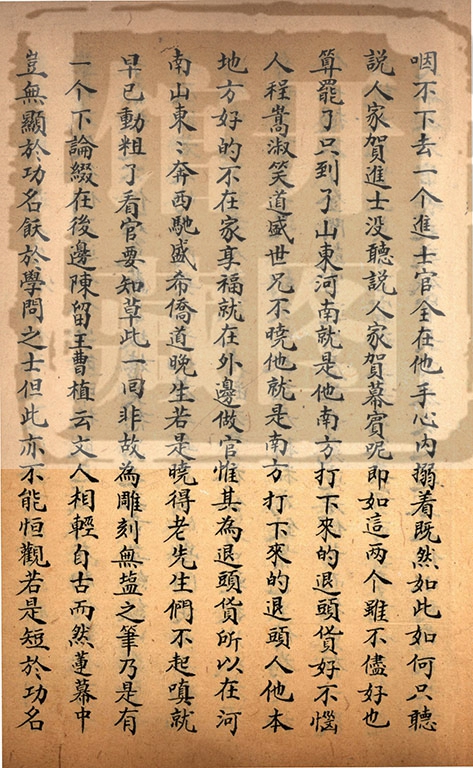 咽不下去一个進士官全在他手心內搦着既然如此如何只聽
說人家賀進士没聽說人家賀幕賓呢即如這两个雖不儘好也
算罷了只到了山東河南就是他南方打下來的退頭貨好不惱
人程嵩淑笑道盛世兄不曉他就是南方打下來的退頭人他本
地方好的不在家享福就在外邊做官惟其為退頭貨所以在河
南山東〻奔西馳盛希僑道晚生若是曉得老先生們不起嗔就
早已動粗了看官要知草此一回非故為雕刻無塩之筆乃是有
一个下論綴在後邊陳留王曹植云文人相輕自古而然蓮幕中
豈無顯於功名飫於學問之士但此亦不能恒觀若是短於功名